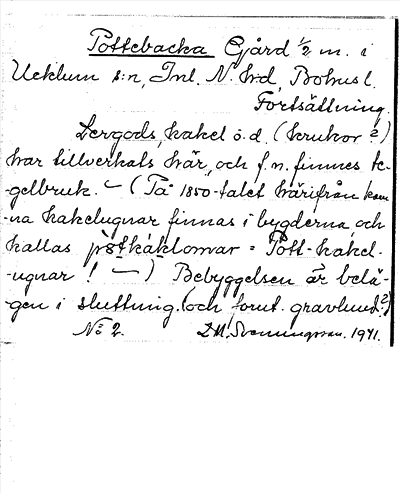 Pottebacka Gård 1/2 m. i
Ucklum s:n, Inl. N. Hrd, Bohusl.
Fortsättning.
Lergods, kakel o.d. (krukor?)
har tillverkats här, och f.n. finnes te-
gelbruk. — (På 1850-talet härifrån kom-
na kakelugnar finnas i bygderna och
kallas påttkáklomnar = Pott-kakel-
-ugnar! —) Bebyggelsen är belä-
-gen i sluttning. (och forut. gravlund?)
No 2. Svenningsson. 1941.